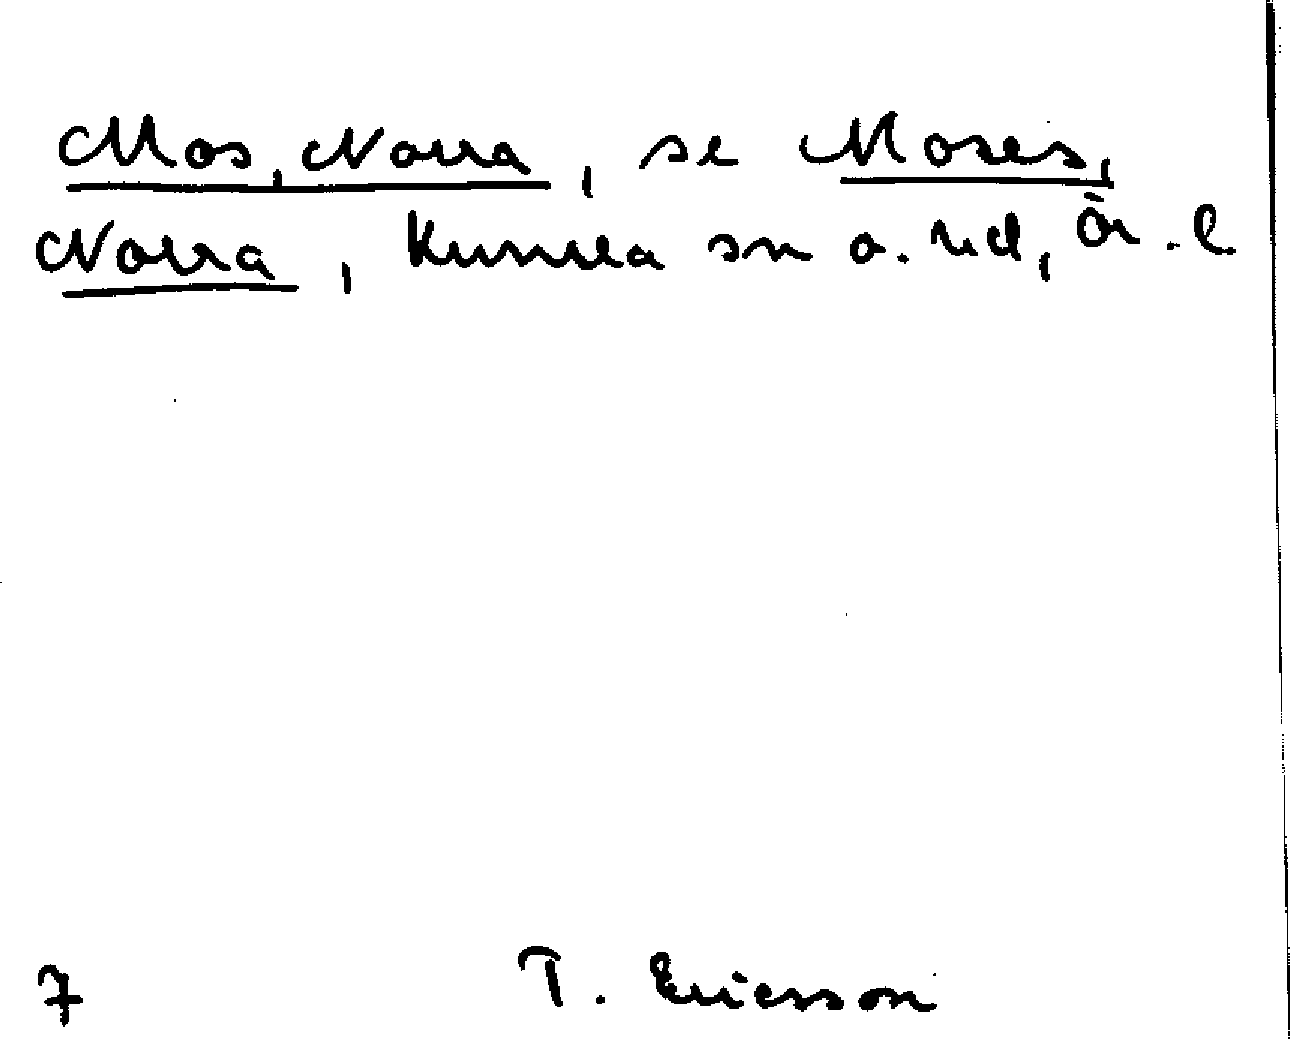 Mos, Norra, se Moses,
Norra, Kumla sn o. hd, Ör. l.
7 T. Ericsson